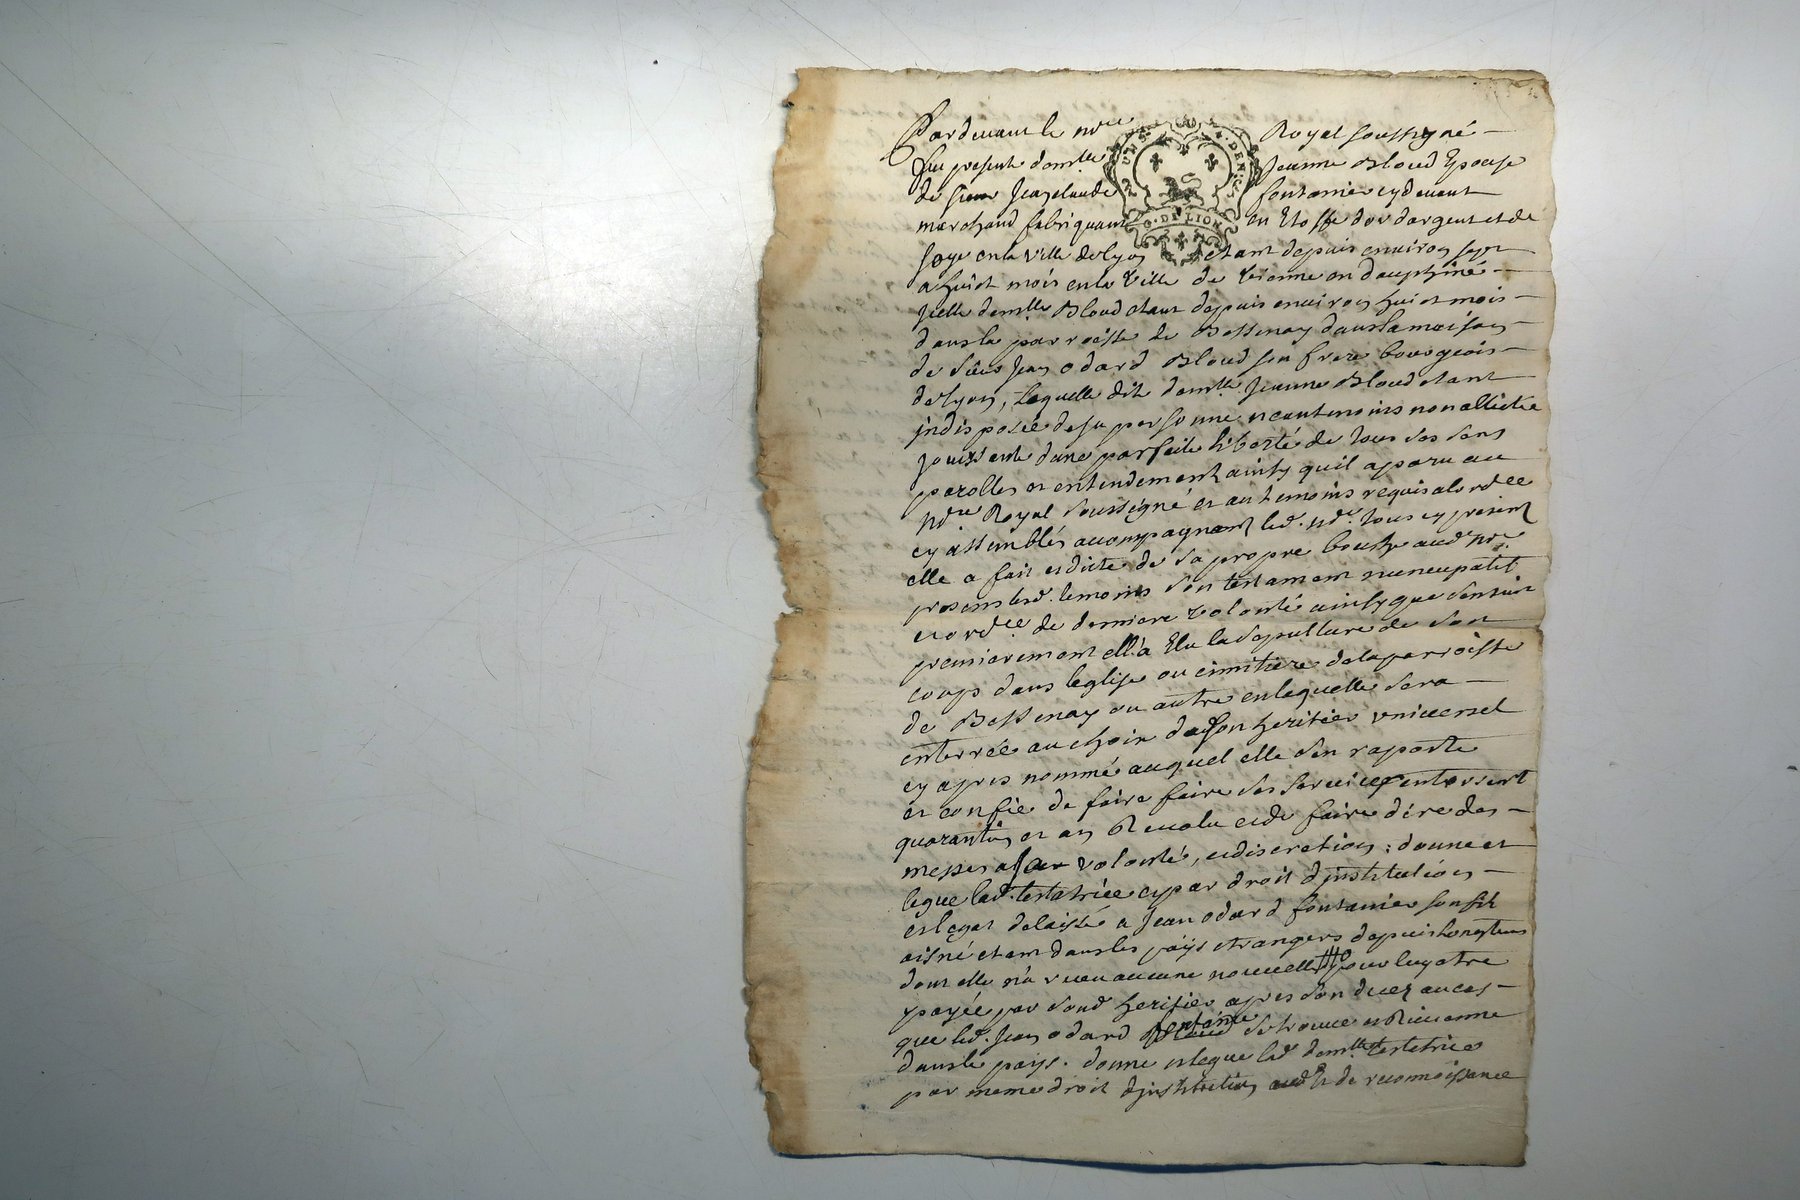 Pardevant le no.re Royal soussigné
fut presente dem.lle Jeanne Bloud Epouse
de sieur Jean claude fontanier cydevant
marchand fabriquant en Etoffe d'or d'argent et de
soye en la ville de lyon etant depuis environ sept
a huict mois en la Ville de Vienne en dauphiné
jcelle dem.lle Bloud etant depuis environ huict mois
dans la parroisse de Bessenay dans la maison
de sieur Jean odard Bloud son frere bourgeois
de lyon, Laquelle dite dem.lle Jeanne Bloud etant
jndisposée de sa personne neantmoins non allictée
jouissante dune parfaite liberté de tous ses sens
parolles et entendement ainsy quil a paru au
no.re Royal soussigné et au temoins requis
cy assemblés accompagnant led. no.re tous cy presents
elle a fait et dicté de sa propre bouche aud no.re
presens lesd. temoins son testament nuncupatif
et ord.ce de derniere volonté ainsy que sensuit
premierement ell'a Elu la sepulture de son
corps dans leglise ou cimitiere de la parroisse
de Bessenay ou autre en laquelle sera
enterrée au choix de son heritier universel
cy apres nommé auquel elle s'en raporte
et confie de faire faire ses services enterrement
quarantin et an Revolu et de faire dire des
messes a sa volonté, et discretion : donne et
legue lad. testatrice et par droit d'jnstitution
et legat delaissé a Jean odard fontanier son fils
aisné etant dans les païs etrangers depuis longtems
dont elle n'a recu aucune nouvelle pour luy etre
payée par sond heritier apres son decez au cas
que led. Jean odard fontanier se trouve et Revienne
dans le pays. donne et legue lad dem.lle testatrice
par meme droit d'jnstitution et de reconnoissance